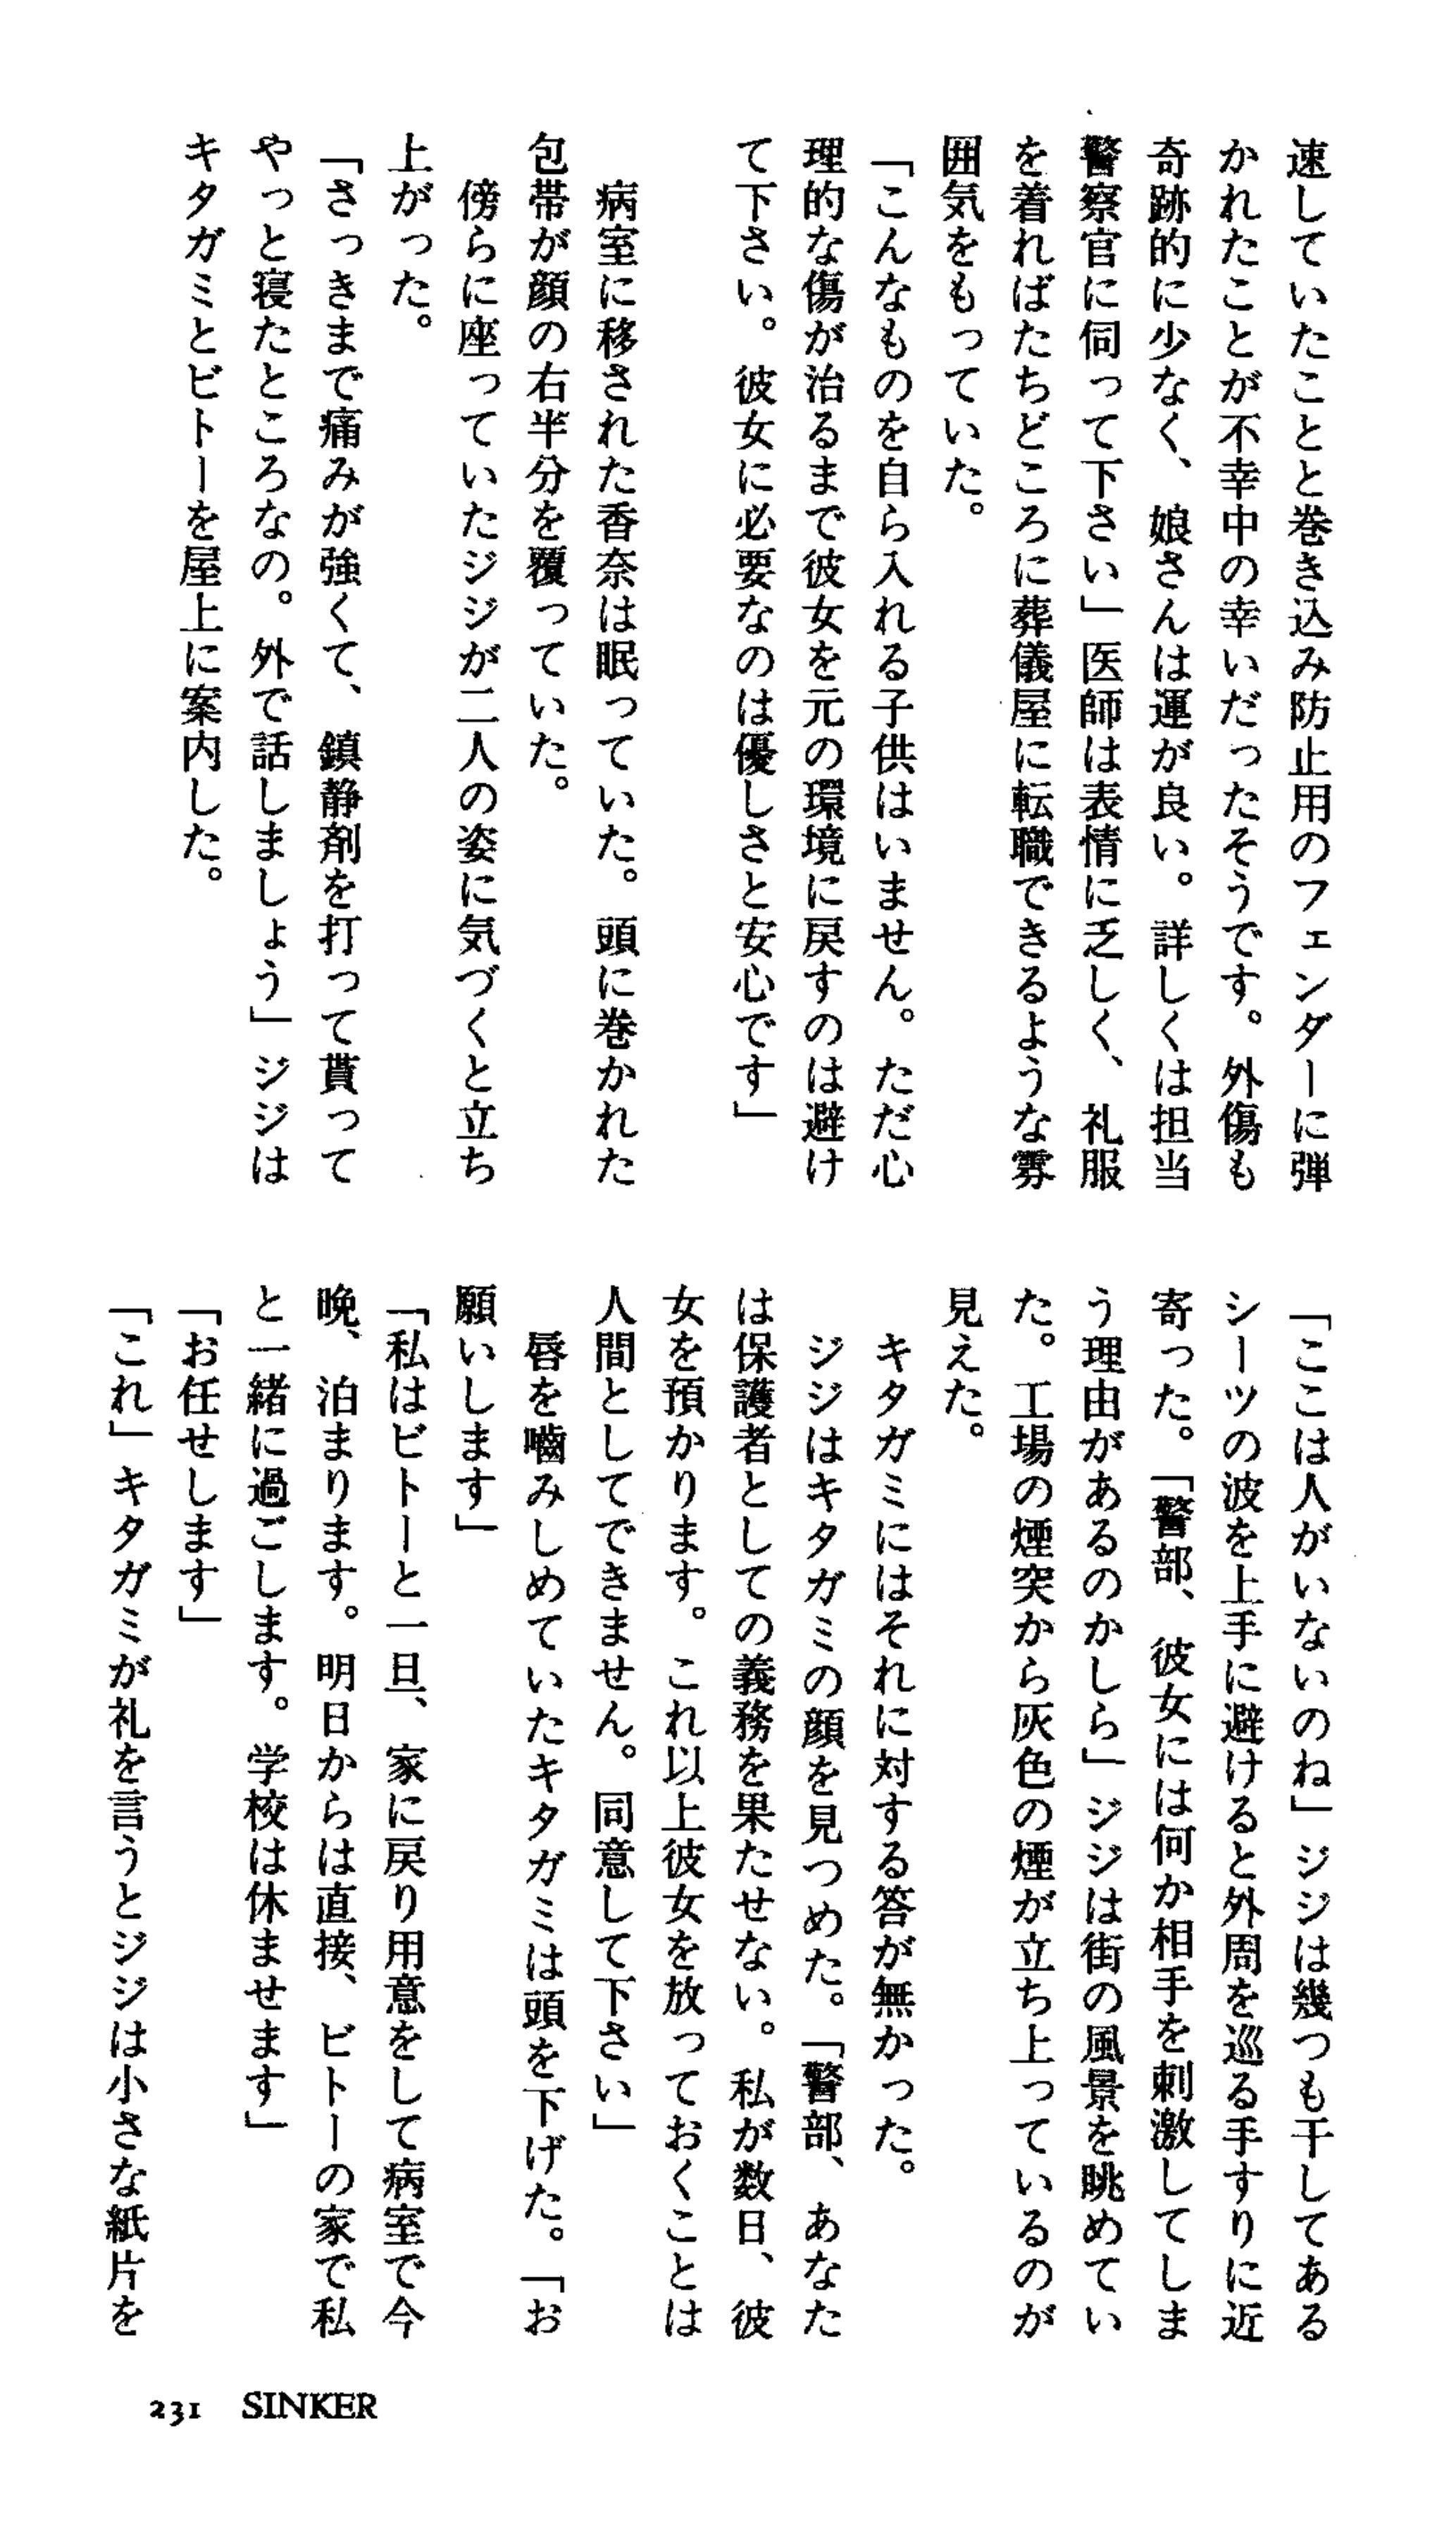 速していたことと巻き込み防止用のフェンダーに弾
かれたことが不幸中の幸いだったそうです。外傷も
奇跡的に少なく、娘さんは運が良い。詳しくは担当
警察官に伺って下さい」医師は表情に乏しく、礼服
を着ればたちどころに葬儀屋に転職できるような雰
囲気をもっていた。
「こんなものを自ら入れる子供はいません。ただ心
理的な傷が治るまで彼女を元の環境に戻すのは避け
て下さい。彼女に必要なのは優しさと安心です」
病室に移された香奈は眠っていた。頭に巻かれた
包帯が顔の右半分を覆っていた。
傍らに座っていたジジが二人の姿に気づくと立ち
上がった。
「さっきまで痛みが強くて、鎮静剤を打って貰って
やっと寝たところなの。外で話しましょう」ジジは
キタガミとビトーを屋上に案内した。
「ここは人がいないのね」ジジは幾つも干してある
シーツの波を上手に避けると外周を巡る手すりに近
寄った。「警部、彼女には何か相手を刺激してしま
う理由があるのかしら」ジジは街の風景を眺めてい
た。工場の煙突から灰色の煙が立ち上っているのが
見えた。
キタガミにはそれに対する答が無かった。
ジジはキタガミの顔を見つめた。「警部、あなた
は保護者としての義務を果たせない。私が数日、彼
女を預かります。これ以上彼女を放っておくことは
人間としてできません。同意して下さい」
唇を噛みしめていたキタガミは頭を下げた。「お
願いします」
「私はビトーと一旦、家に戻り用意をして病室で今
晩、泊まります。明日からは直接、ビトーの家で私
と一緒に過ごします。学校は休ませます」
「お任せします」
「これ」キタガミが礼を言うとジジは小さな紙片を
231 SINKER